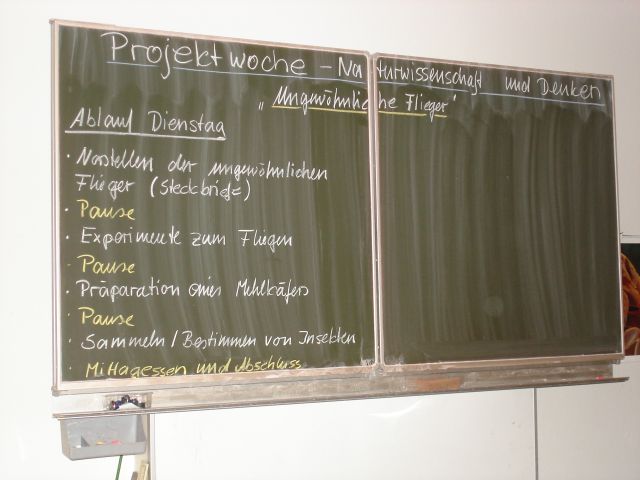 Projektwoche - Naturwissenschaft und Denken
„Ungewöhnliche Flieger"
Ablauf Dienstag
· Vorstellen der ungewöhnlichen
Flieger (Steckbriefe)
· Pause
· Experimente zum Fliegen
· Pause
· Präparation eines Mehlkäfers
· Pause
· Sammeln / Bestimmen von Insekten
· Mittagessen und Abschluss